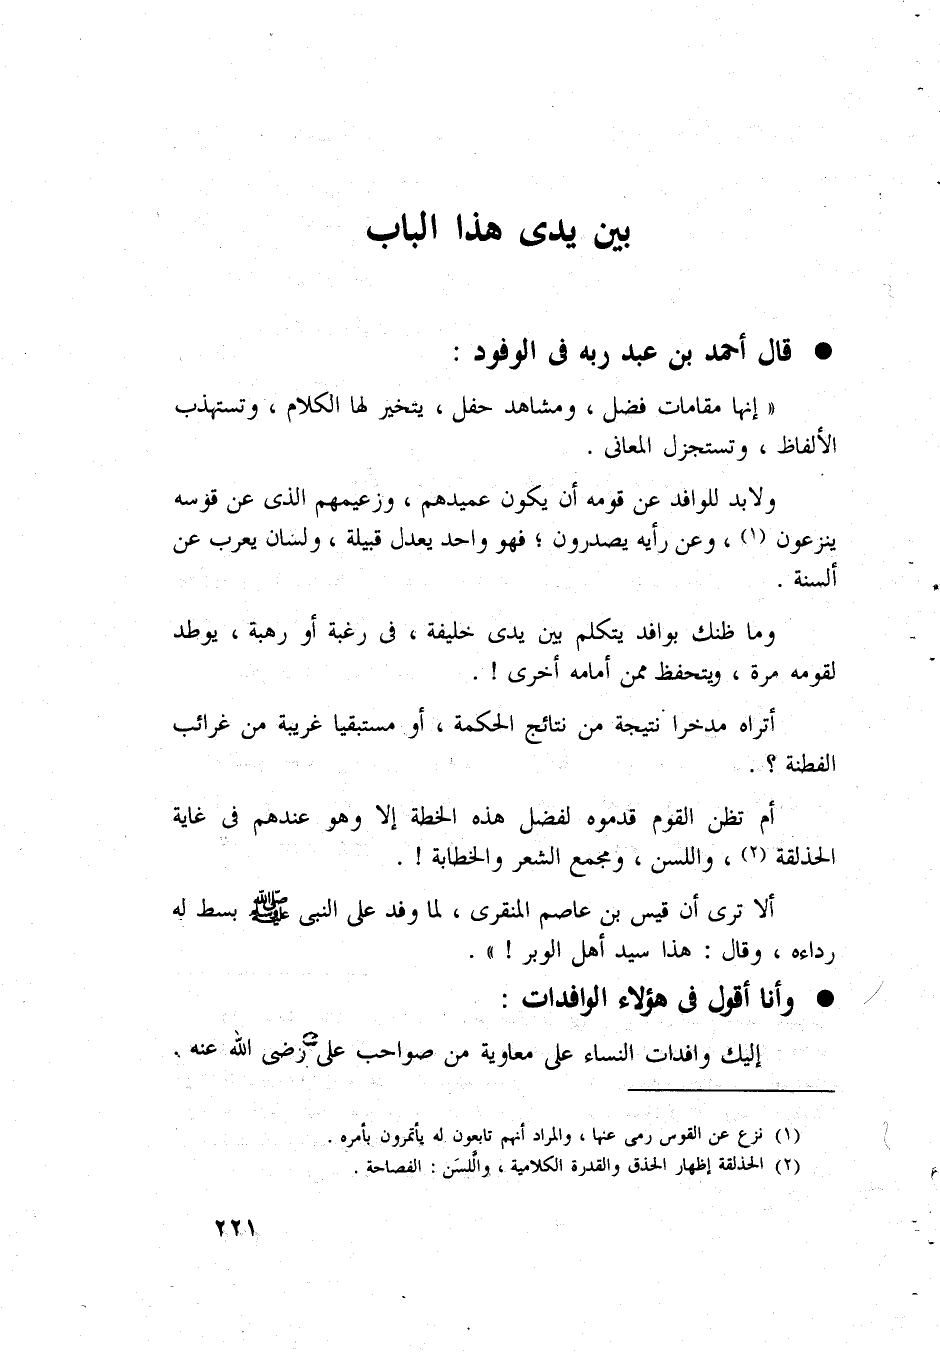 بين يدى هذا الباب
● قال أحمد بن عبد ربه فى الوفود :
« إنها مقامات فضل ، ومشاهد حفل ، يتخير لها الكلام ، وتستهذب
الألفاظ ، وتستجزل المعانى .
ولابد للوافد عن قومه أن يكون عميدهم ، وزعيمهم الذى عن قوسه
ينزعون (١) ، وعن رأيه يصدرون ؛ فهو واحد يعدل قبيلة ، ولسان يعرب عن
ألسنة .
وما ظنك بوافد يتكلم بين يدى خليفة ، فى رغبة أو رهبة ، يوطد
لقومه مرة ، ويتحفظ ممن أمامه أخرى ! .
أتراه مدخرا نتيجة من نتائج الحكمة ، أو مستبقيا غريبة من غرائب
الفطنة ؟ .
أم تظن القوم قدموه لفضل هذه الخطة إلا وهو عندهم فى غاية
الحذلقة (٢) ، واللسن ، ومجمع الشعر والخطابة ! .
ألا ترى أن قيس بن عاصم المنقرى ، لما وفد على النبى ﷺ بسط له
رداءه ، وقال : هذا سيد أهل الوبر ! » .
● وأنا أقول فى هؤلاء الوافدات :
إليك وافدات النساء على معاوية من صواحب على رضى الله عنه .
(١) نزع عن القوس رمى عنها ، والمراد أنهم تابعون له يأتمرون بأمره .
(٢) الحذلقة إظهار الحذق والقدرة الكلامية ، واللَّسَن : الفصاحة .
٢٢١